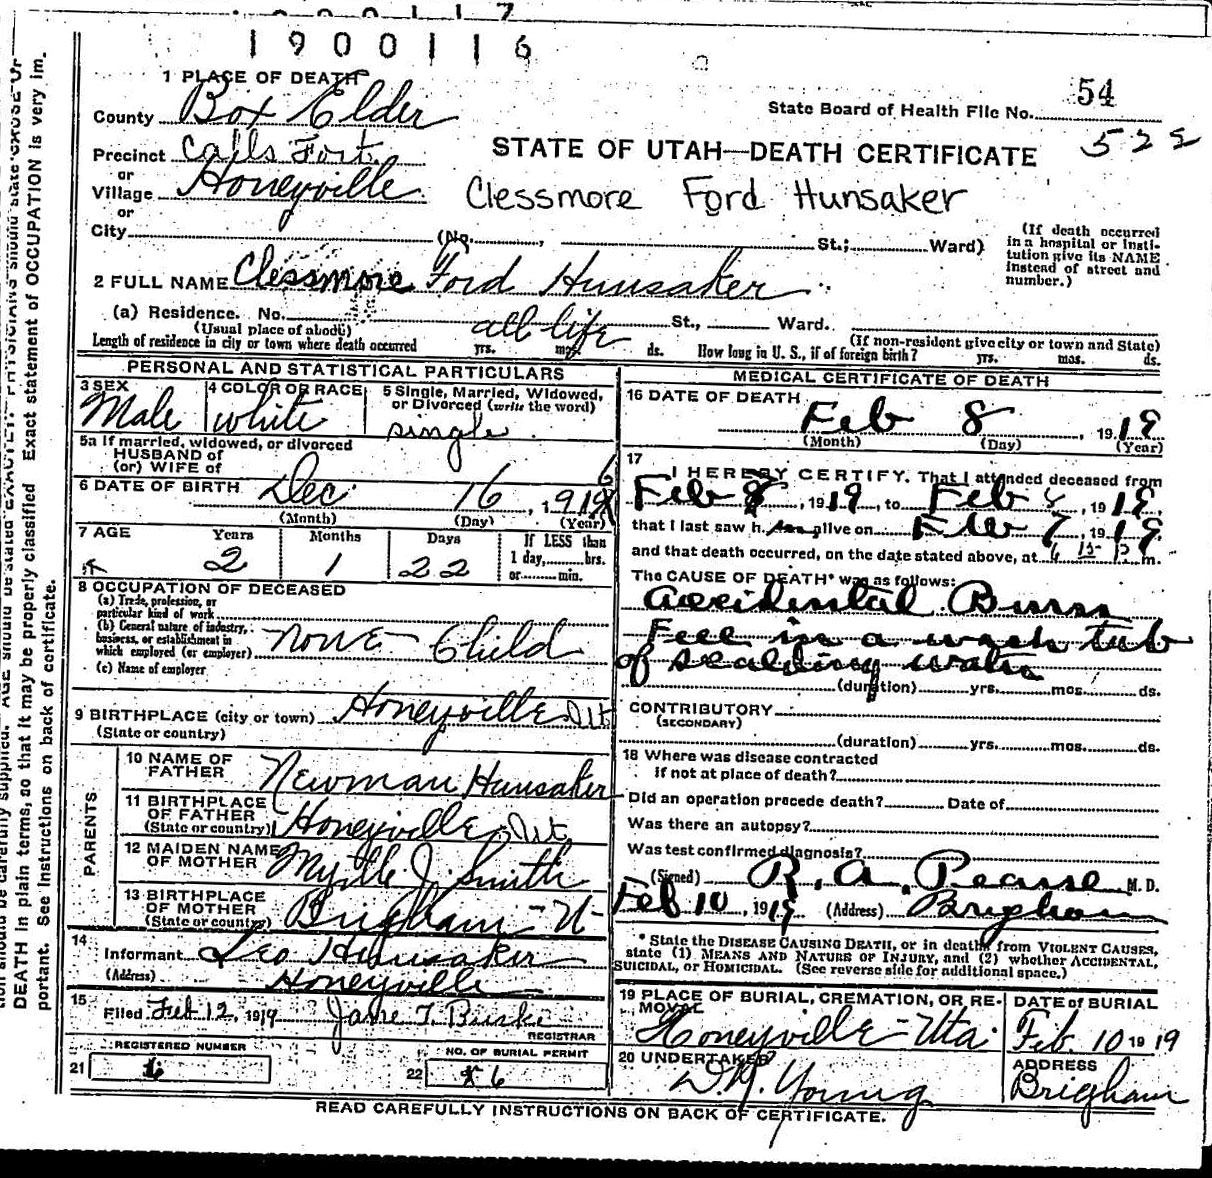 1900116
1 PLACE OF DEATH
State Board of Health File No. 54
County Box Elder
522
Precinct Calls Fort
STATE OF UTAH—DEATH CERTIFICATE
or
Village Honeyville
Clessmore Ford Hunsaker
or
City (No. , St.; Ward)
(If death occurred in a hospital or institution give its NAME instead of street and number.)
2 FULL NAME Clessmore Ford Hunsaker
(a) Residence. No. St., Ward.
(Usual place of abode)
(If non-resident give city or town and State)
Length of residence in city or town where death occurred all life yrs. mos. ds. How long in U. S., if of foreign birth? yrs. mos. ds.
PERSONAL AND STATISTICAL PARTICULARS
3 SEX
Male
4 COLOR OR RACE
white
5 Single, Married, Widowed,
or Divorced (write the word)
single
5a If married, widowed, or divorced
HUSBAND of
(or) WIFE of
6 DATE OF BIRTH Dec 16, 1916
(Month) (Day) (Year)
7 AGE Years Months Days
2 1 22
If LESS than
1 day,......hrs.
or......min.
8 OCCUPATION OF DECEASED
(a) Trade, profession, or
particular kind of work
(b) General nature of industry,
business, or establishment in
which employed (or employer)
none Child
(c) Name of employer
9 BIRTHPLACE (city or town) Honeyville Ut
(State or country)
PARENTS
10 NAME OF
FATHER Newman Hunsaker
11 BIRTHPLACE
OF FATHER
(State or country) Honeyville, Ut
12 MAIDEN NAME
OF MOTHER Myrtle J. Smith
13 BIRTHPLACE
OF MOTHER
(State or country) Brigham - Ut
14
Informant Leo Hunsaker
(Address) Honeyville
15
Filed Feb 12, 1919 Jane T. Burke
REGISTRAR
REGISTERED NUMBER
21 6
NO. OF BURIAL PERMIT
22 6
MEDICAL CERTIFICATE OF DEATH
16 DATE OF DEATH
Feb 8, 1919
(Month) (Day) (Year)
17
I HEREBY CERTIFY, That I attended deceased from
Feb 8, 1919, to Feb 8, 1919,
that I last saw h alive on Feb 7, 1919
and that death occurred, on the date stated above, at 6 15 P m.
The CAUSE OF DEATH* was as follows:
accidental Burns
Fell in a wash tub
of scalding water
(duration) yrs. mos. ds.
CONTRIBUTORY
(SECONDARY)
(duration) yrs. mos. ds.
18 Where was disease contracted
if not at place of death?
Did an operation precede death? Date of
Was there an autopsy?
Was test confirmed diagnosis?
(Signed) R. A. Pearse M. D.
Feb 10, 1919 (Address) Brigham
* State the DISEASE CAUSING DEATH, or in death from VIOLENT CAUSES,
state (1) MEANS AND NATURE OF INJURY, and (2) whether ACCIDENTAL,
SUICIDAL, or HOMICIDAL. (See reverse side for additional space.)
19 PLACE OF BURIAL, CREMATION, OR RE-
MOVAL
Honeyville - Uta
DATE of BURIAL
Feb. 10 1919
20 UNDERTAKER
ADDRESS
Young
Brigham
READ CAREFULLY INSTRUCTIONS ON BACK OF CERTIFICATE.
DEATH in plain terms, so that it may be properly classified. Exact statement of OCCUPATION is very im-
portant. See Instructions on back of certificate.